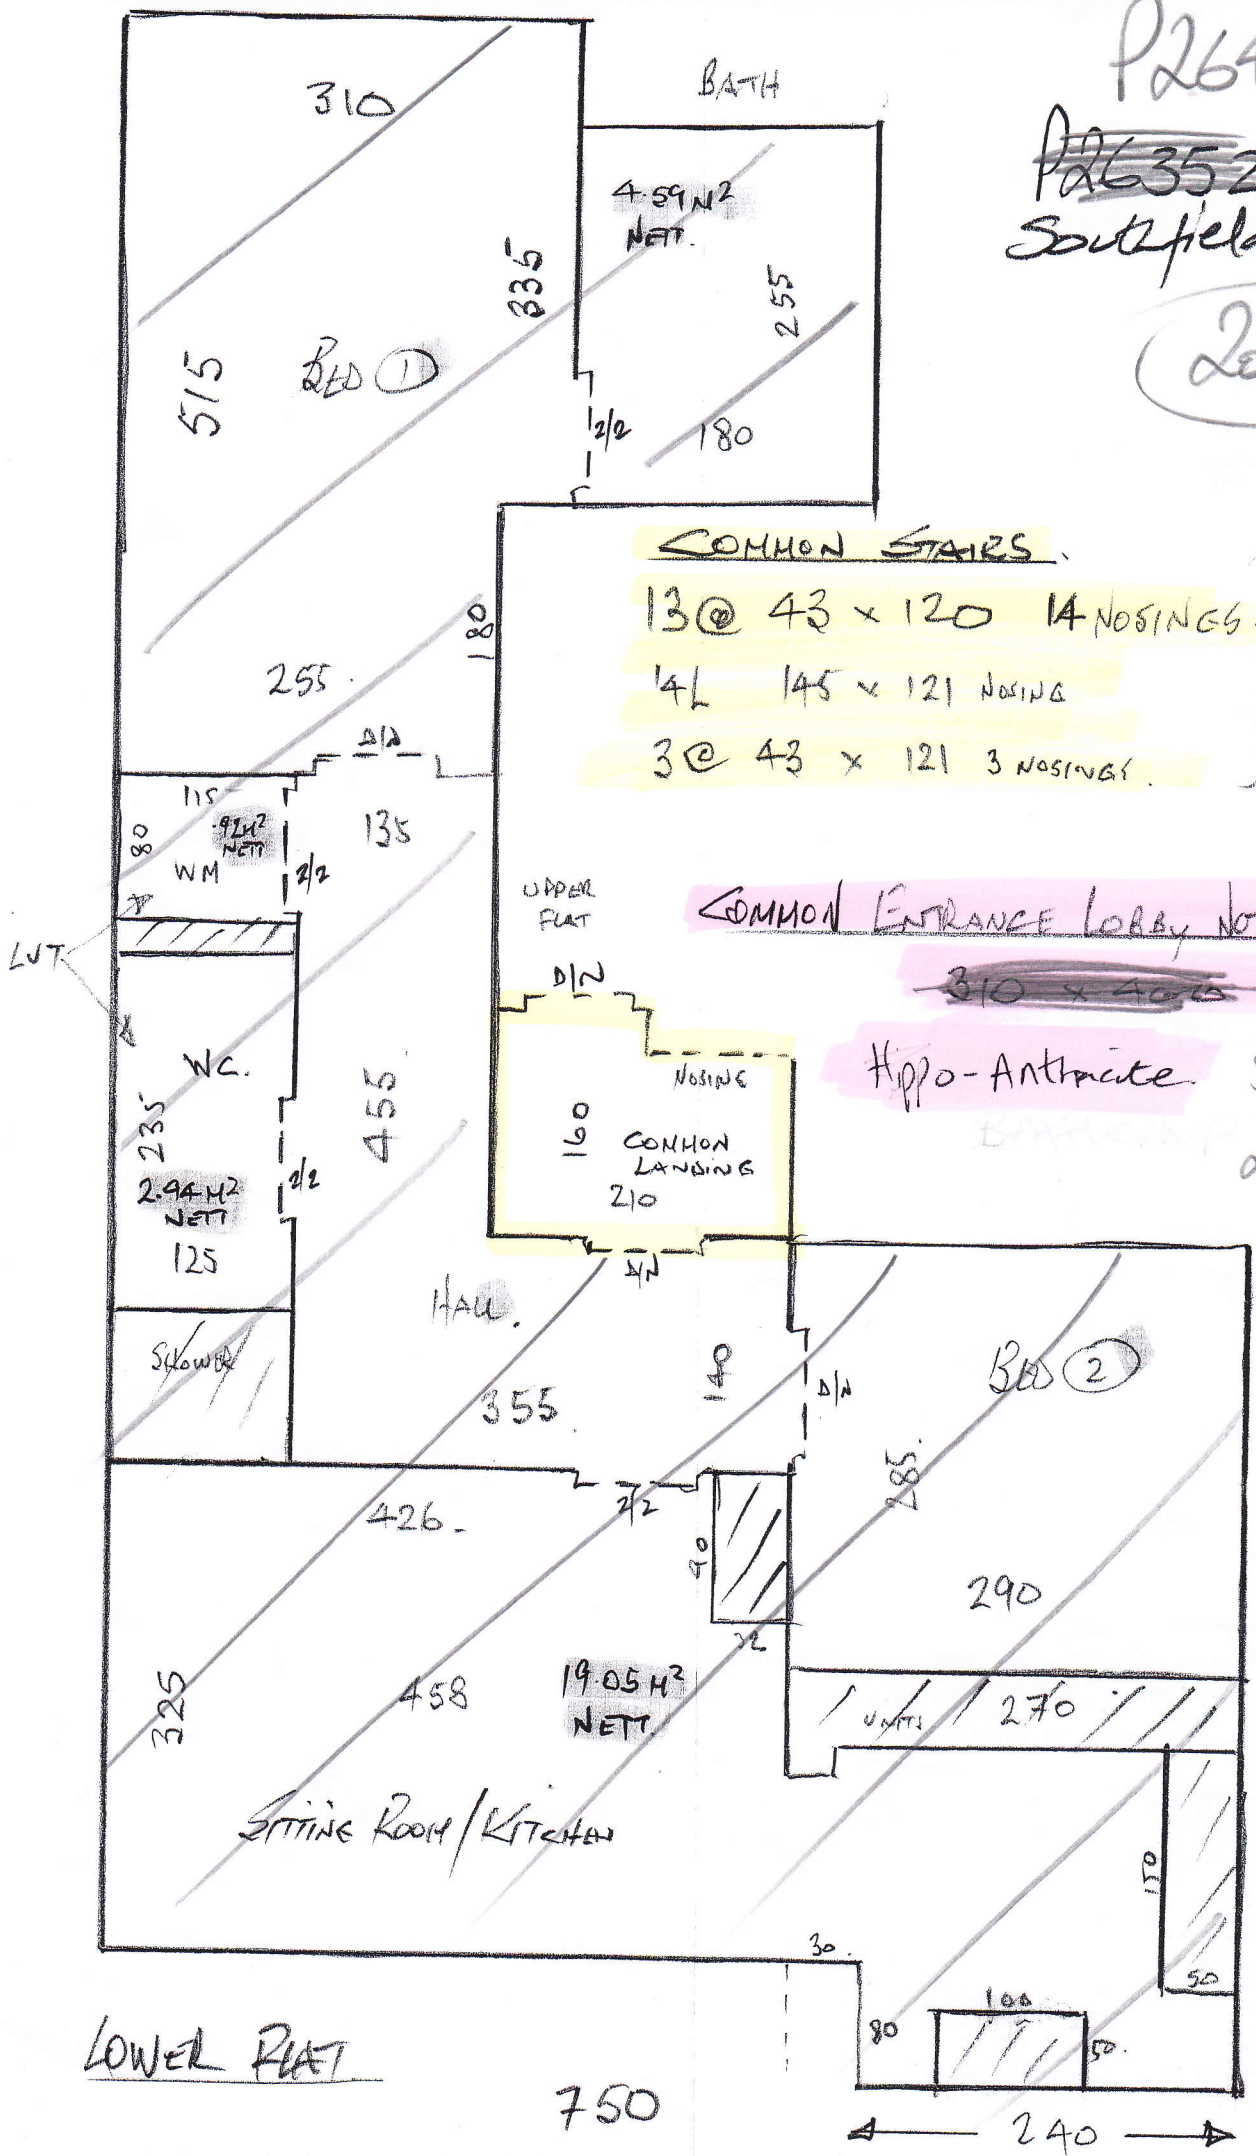 P264
P26352
Southfield
BATH
310
4.59 M²
NETT.
335
255
515
BED 1
2/2
180
COMMON STAIRS.
13 @ 43 x 120 14 NOSINGS.
1/4L 145 x 121 NOSING
3 @ 43 x 121 3 NOSINGS.
180
255.
D/N
115
.92M²
NETT
80
WM
2/2
135
UPPER
FLAT
COMMON ENTRANCE LOBBY
310 x 400
LVT
D/N
WC.
NOSING
Hippo-Anthracite.
455
160
COMMON
LANDING
210
235
2/2
2.94 M²
NETT
125
D/N
HALL.
SHOWER
355
D/N
BED 2
285.
426.
2/2
90
32
290
325
458
19.05 M²
NETT.
UNITS
270
SITTING ROOM/KITCHEN
150
30.
50
100
80
50.
LOWER FLAT
750
240